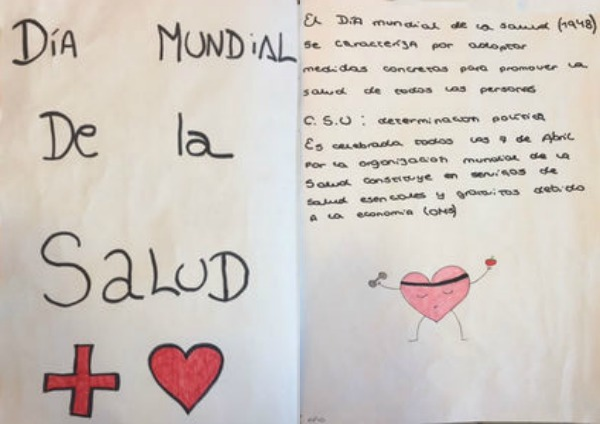 DíA MUNDiAL
De la
SaLUD
EL DíA mundial de la salud (1948)
se caracteriza por adoptar
medidas concretas para promover la
salud de todas las personas
C.S.U : determinacion politica
Es celebrada todos los 7 de Abril
por la organizacion mundial de la
salud constituye en servicios de
salud esenciales y gratuitos debido
A la economia (OMS)